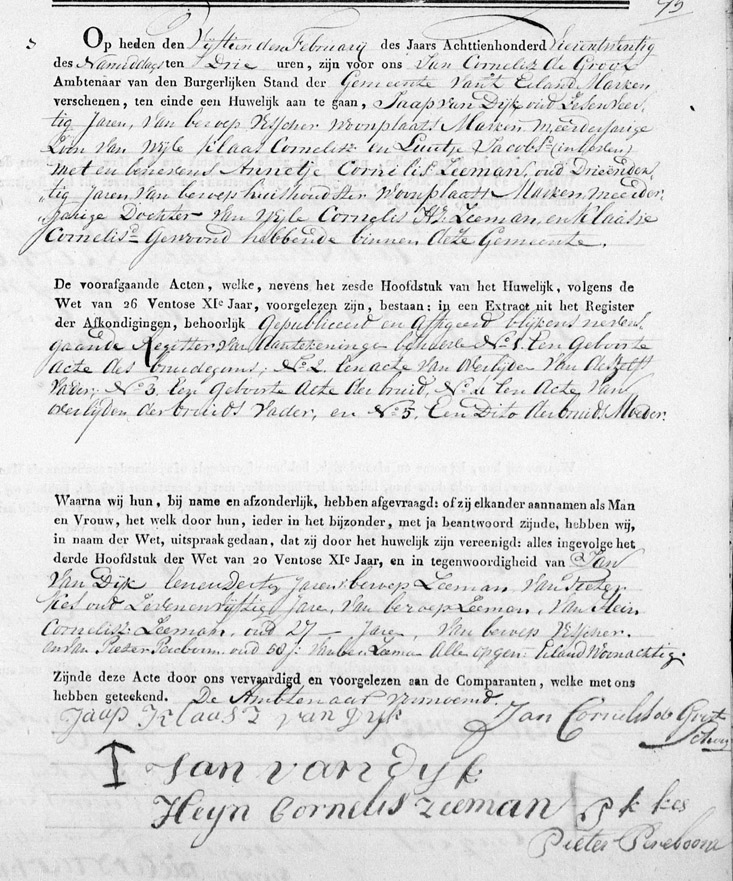 95
Op heden den Vyftienden February des Jaars Achttienhonderd Vierentwintig
des Nameddags ten Drie uren, zijn voor ons Jan Cornelisz de Groot
Ambtenaar van den Burgerlijken Stand der Gemeente van't Eiland Marken
verschenen, ten einde een Huwelijk aan te gaan, Jaap van Dijk, oud Sesenveer,
tig Jaren, Van beroep Visscher Woonplaats Marken, meerderjarige
Zoon van Wyle Klaas Cornelisz en Luutje Jacobsd (in leeven)
met en benevens Annetje Cornelis Zeeman, oud Drieënder,
tig Jaren van beroep huishoudster woonplaats Marken, meerder,
jarige Dochter van Wyle Cornelis Hz Zeeman, en Klaasje
Cornelisd Gewoond hebbende binnen deze Gemeente.
De voorafgaande Acten, welke, nevens het zesde Hoofdstuk van het Huwelijk, volgens de
Wet van 26 Ventose XIe Jaar, voorgelezen zijn, bestaan: in een Extract uit het Register
der Afkondigingen, behoorlijk Gepubliceerd en Affigeerd blijkens nevens,
gaande Register van aantekeninge behoeste No 1. Een Geboorte
acte des bruidegoms, No 2. Een acte van overlyden van deszelfs
Vader, No 3. Een Geboorte Acte der bruid, No 4 Een Acte van
overlijden der bruids Vader, en No 5. Een Dito der bruids Moeder.
Waarna wij hun, bij name en afzonderlijk, hebben afgevraagd: of zij elkander aannamen als Man
en Vrouw, het welk door hun, ieder in het bijzonder, met ja beantwoord zijnde, hebben wij,
in naam der Wet, uitspraak gedaan, dat zij door het huwelijk zijn vereenigd: alles ingevolge het
derde Hoofdstuk der Wet van 20 Ventose XIe Jaar, en in tegenwoordigheid van Jan
Van Dijk Eenenderteg Jaren: beroep Zeeman, Van Pieter
Kes oud Zevenenvijftig Jare, Van beroep Zeeman, Van Hein
Cornelisz Zeeman, oud 27 – Jare, Van beroep Visscher.
en van Pieter Pereboom, oud 50 J: Van ber. Zeeman Alle op gem: Eiland Woonachtig.
Zijnde deze Acte door ons vervaardigd en voorgelezen aan de Comparanten, welke met ons
hebben geteekend. De Ambtenaar voornoemd.
Jaap Klaasz van Dyk Jan Cornelis de Groot
Schout
Jan van dyk
Heyn Cornelis Zeeman P k kes
Pieter Pereboom